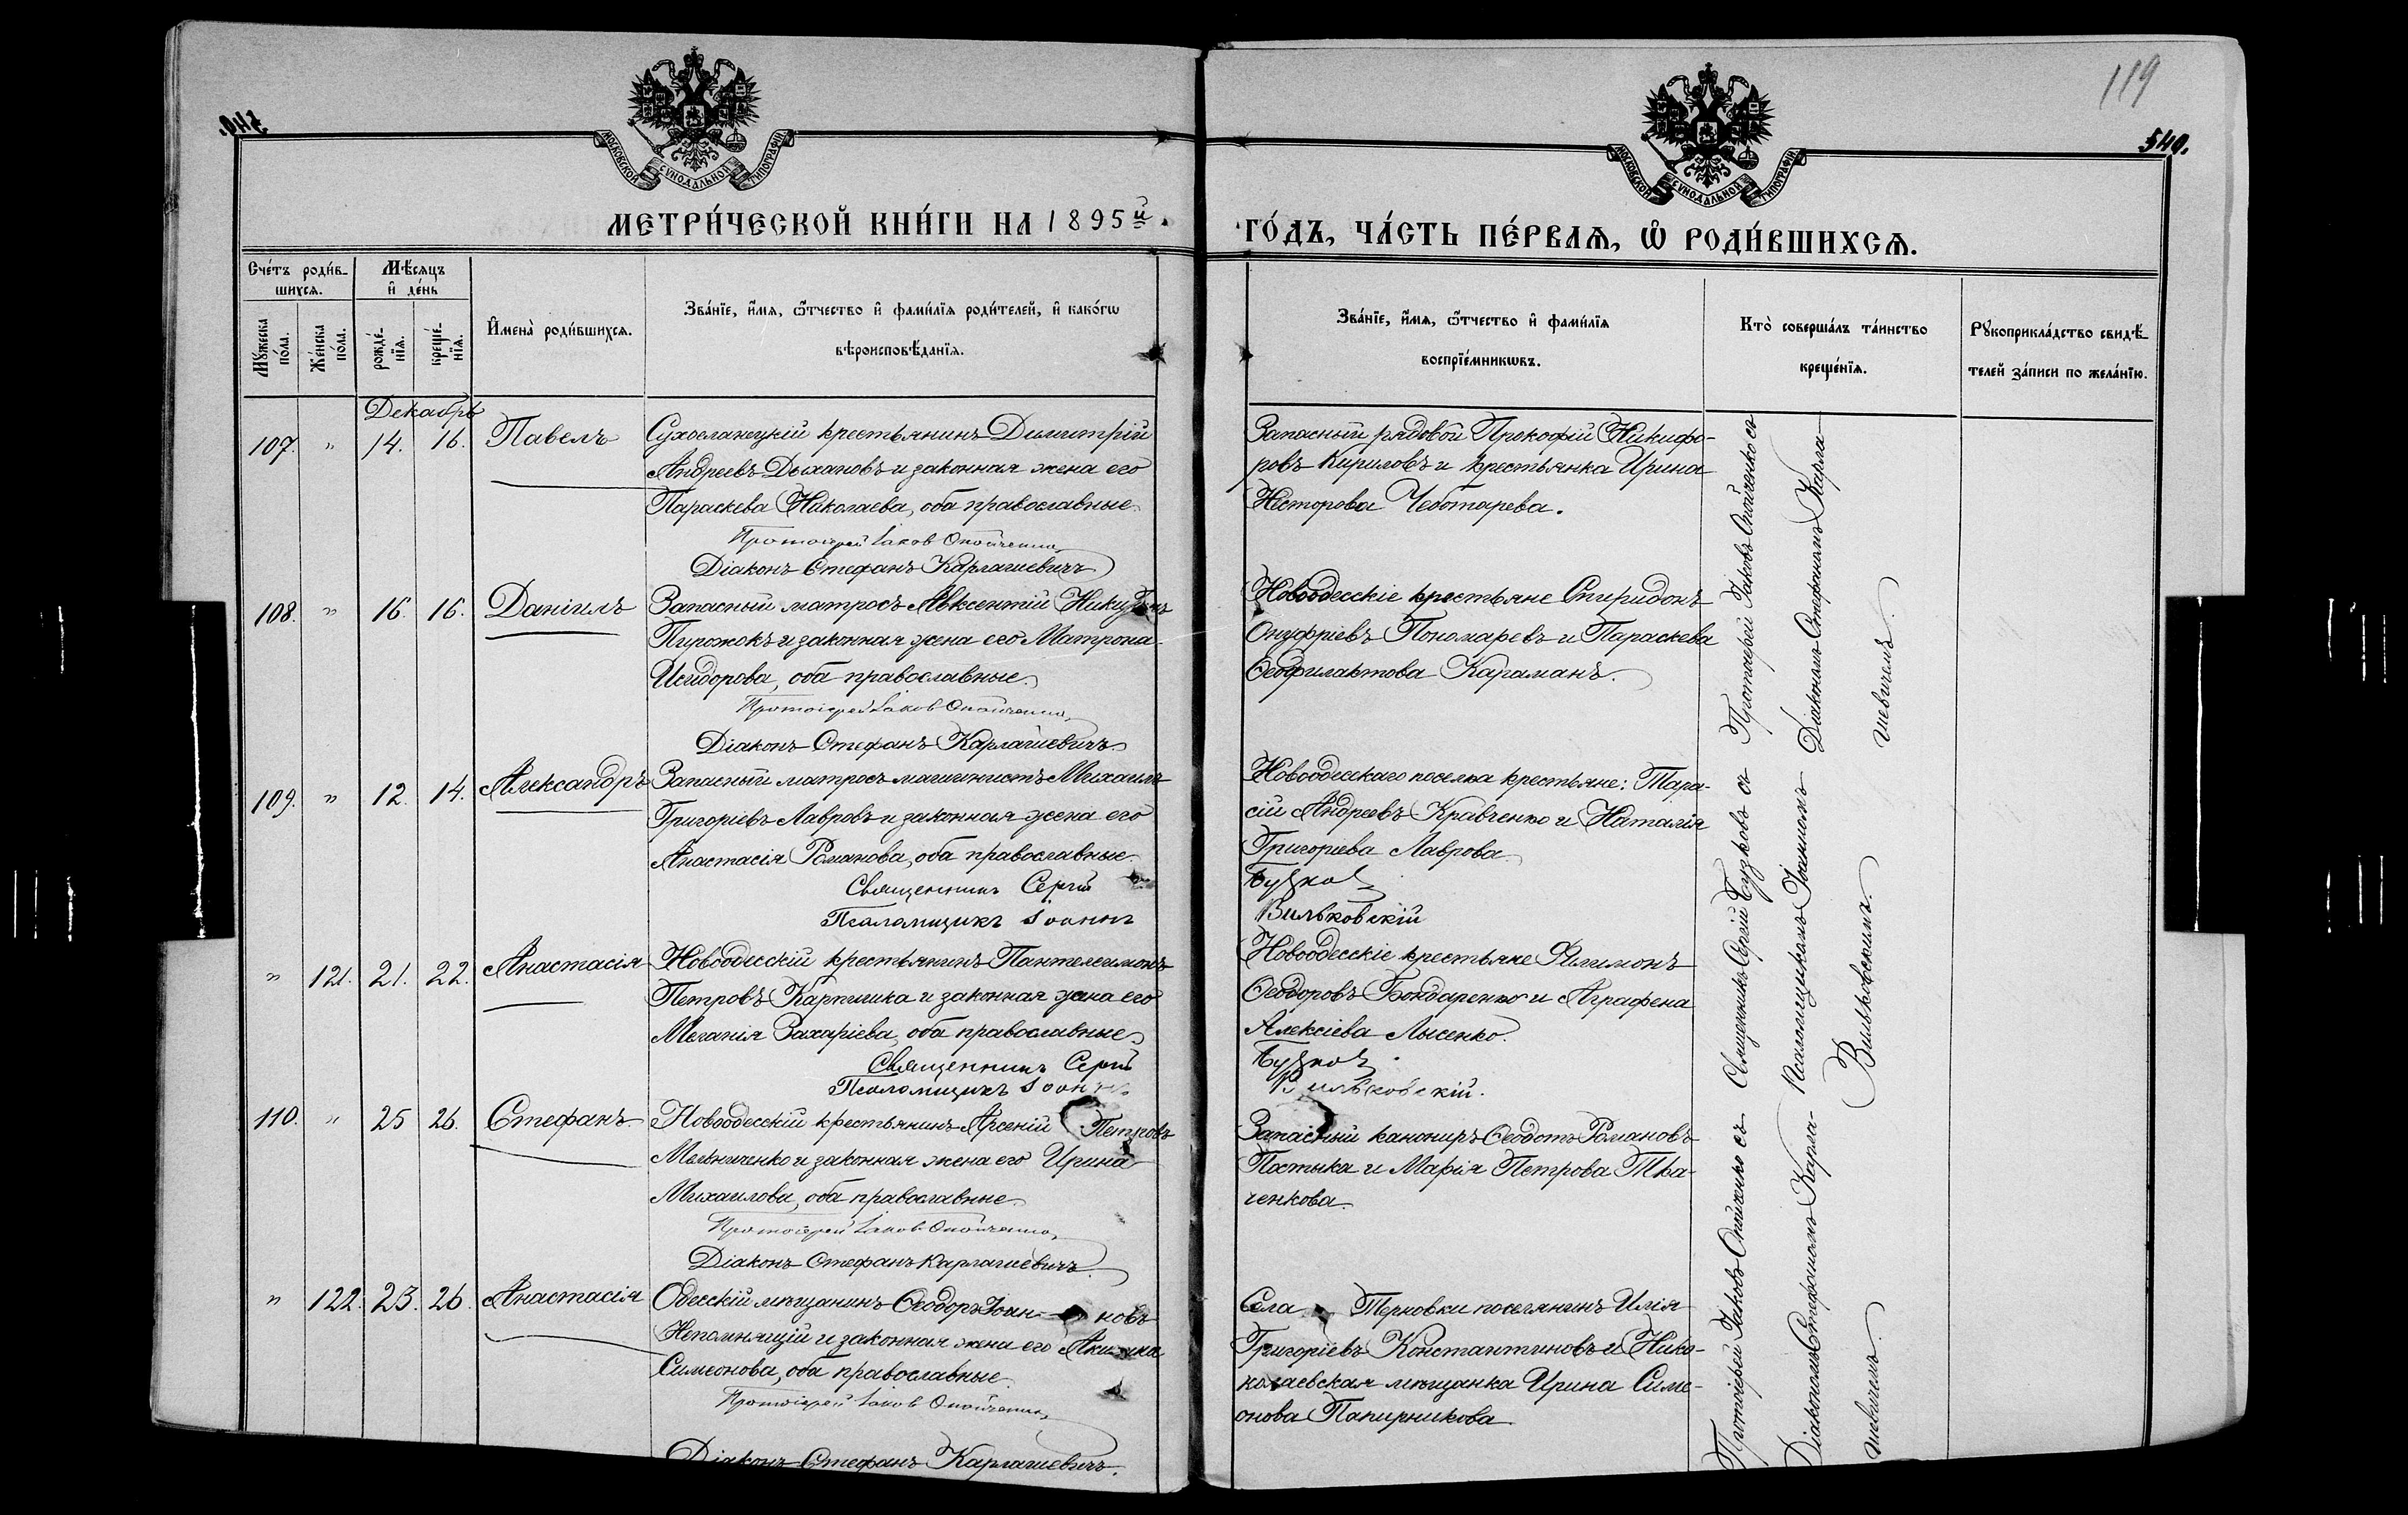 119
540.
МОСКОВСКОЙ СУНОДАЛЬНОЙ ТИПОГРАФІИ
МОСКОВСКОЙ СУНОДАЛЬНОЙ ТИПОГРАФІИ
МЕТРИ́ЧЕСКОЙ КНИ́ГИ НА 1895й.
ГО́ДЪ, ЧА́СТЬ ПЕ́РВАѦ, Ѽ РОДИ́ВШИХСѦ.
Сче́тъ роди́в-
шихсѧ.
Мѣ́сѧцъ
и҆ де́нь
Мꙋ́жеска по́ла.
Же́нска по́ла.
рожде́-нїѧ.
креще́-нїѧ.
И҆мена̀ роди́вшихсѧ.
Зва́нїе, и҆́мѧ, ѻ҆́тчество и҆ фами́лїѧ роди́телей, и҆ како́гѡ
вѣроисповѣ́данїѧ.
Зва́нїе, и҆́мѧ, ѻ҆́тчество и҆ фами́лїѧ
воспрїе́мникѡвъ.
Кто̀ соверша́лъ та́инство
креще́нїѧ.
Рꙋкоприкла́дство свидѣ́-
телей за́писи по жела́нїю.
Декабрь
107. " 14. 16. Павелъ
Сухоеланецкій крестьянинъ Димитрій
Андреевъ Дыхановъ и законная жена его
Параскева Николаева, оба православные.
Протоіерей Іаков Опойченко
Діаконъ Стефанъ Карлашевичъ
Запасный рядовой Прокофій Никифо-
ровъ Кириловъ и крестьянка Ирина
Несторова Чеботарева.
Протоіерей Іаковъ Опойченко съ
Діакономъ Стефаномъ Карла-
шевичемъ.
108. " 16. 16. Даніилъ
Запасный матросъ Авксентій
Пирожокъ и законная жена его Матрона
Исидорова, оба православные.
Протоіерей Іаков Опойченко
Діаконъ Стефанъ Карлашевичъ
Новоодесскіе крестьяне Спиридонъ
Онуфріевъ Пономаревъ и Параскева
Ѳеофилактова Караманъ.
109. " 12. 14. Александръ
Запасный матросъ машинистъ Михаилъ
Григоріевъ Лавровъ и законная жена его
Анастасія Романова, оба православные.
Священникъ Сергій
Псаломщикъ Іоаннъ
Новоодесскаго поселка крестьяне: Тара-
сій Андреевъ Кравченко и Наталія
Григорьева Лаврова.
Буzков
Вильковскій
Священникъ Сергій Буzковъ съ
Псаломщикомъ Іоанномъ
Вильковскимъ.
" 121. 21. 22. Анастасія
Новоодесскій крестьянинъ Пантелеимонъ
Петровъ Карпишка и законная жена его
Меланія Захаріева, оба православные.
Священникъ Сергій
Псаломщикъ Іоаннъ
Новоодесскіе крестьяне Филимонъ
Ѳеодоровъ Бондаренко и Аграфена
Алексіева Лысенко.
Буzков
Вильковскій.
110. " 25 26. Стефанъ
Новоодесскій крестьянинъ Арсеній Петровъ
Мельниченко и законная жена его Ирина
Михаилова, оба православные
Протоіерей Іаков Опойченко
Діаконъ Стефанъ Карлашевичъ
Запасный канониръ Ѳеодотъ Романовъ
Пастыка и Марія Петрова Тка-
ченкова.
Протоіерей Іаковъ Опойченко съ
Діакономъ Стефаномъ Карла-
шевичемъ.
" 122. 23. 26. Анастасія
Одесскій мѣщанинъ Ѳеодоръ Іоан- новъ
Непомнящій и законная жена его
Симеонова, оба православные
Протоіерей Іаков Опойченко
Діаконъ Стефанъ Карлашевичъ.
Села Терновки поселянинъ Илія
Григоріевъ Константиновъ и Нико-
лаевская мѣщанка Ирина Симе-
онова Папирникова.